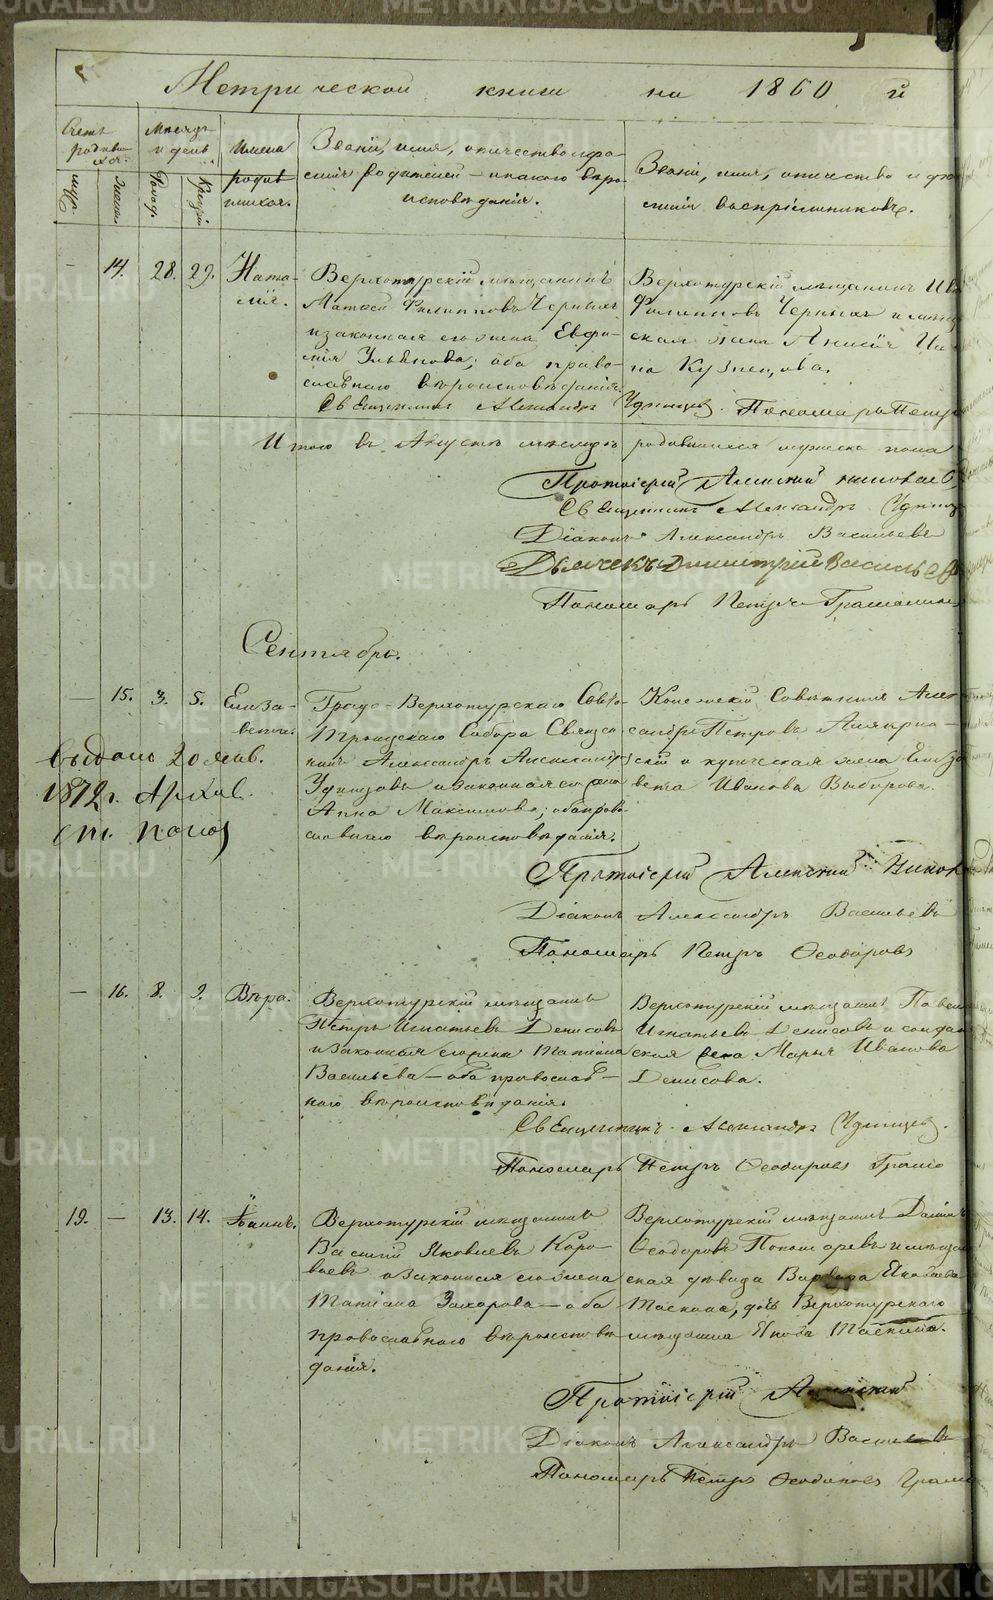 METRIKI.GASO-URAL.RU
Метрической книги на 1860 й
Счетъ родившихся.
муж.
женс.
Месяцъ и день
Рожд.
Крещен.
Имена родившихся.
Званіе, имя, отчество и фа-
милія родителей и какого веро-
исповѣданія.
Званіе, имя, отчество и фа-
милія воспріемниковъ.
— 14. 28. 29. Ната-
лія.
Верхотурскій мѣщанинъ
Матвей Филипповъ Черныхъ
и законная его жена Евфи-
мія Ульянова; оба право-
славнаго вероисповѣданія.
Верхотурскій мѣщанинъ
Филипповъ Черныхъ и мѣщан
ская Анисія
на Кузнецова.
Священникъ Александръ Удинцев. Пономарь Петръ
Итого въ Августѣ месяцѣ родившихся мужска пола
Протоіерей Алексій
Священникъ Александръ Удинц
Діаконъ Александръ Васильевъ
Дьячекъ Димитрій Васильев
Пономарь Петръ Грамолин
Сентябрь.
— 15. 3. 5. Елиза-
вета.
Градо-Верхотурскаго Свято-
троицкаго Собора Священ-
никъ Александръ Александр
Удинцовъ и законная его жена
Анна Максимова; оба право-
славнаго вероисповѣданія.
Колежскій Советникъ Алек-
сандръ Петровъ
скій и купеческая жена Елиза
вета Иванова Выборова.
выдано 20 янв.
1872 г.
Протоіерей Алексій
Діаконъ Александръ Васильевъ
Пономарь Петръ Феодоровъ
— 16. 8. 9. Вѣра.
Верхотурскій мѣщанинъ
Петръ Игнатьевъ Денисовъ
и законная его жена Татіана
Васильева — оба православ-
наго вероисповѣданія.
Верхотурскій мѣщанинъ Павелъ
Игнатьевъ Денисовъ и солдат
ская Марья Иванова
Денисова.
Священникъ Александръ Удинцев.
Пономарь Петръ Феодоровъ Грамо
19. — 13. 14. Іоаннъ.
Верхотурскій мѣщанинъ
Василій Яковлевъ Коро-
ваевъ и законная его жена
Татіана Захарова — оба
православнаго вероисповѣ-
данія.
Верхотурскій мѣщанинъ
Феодоровъ Пономаревъ и мѣщан
ская дѣвица Варвара Яковлева
Таскина, дочь Верхотурскаго
мѣщанина Якова Таскина.
Протоіерей Алексій
Діаконъ Александръ Васильевъ
Пономарь Петръ Феодоровъ Грам